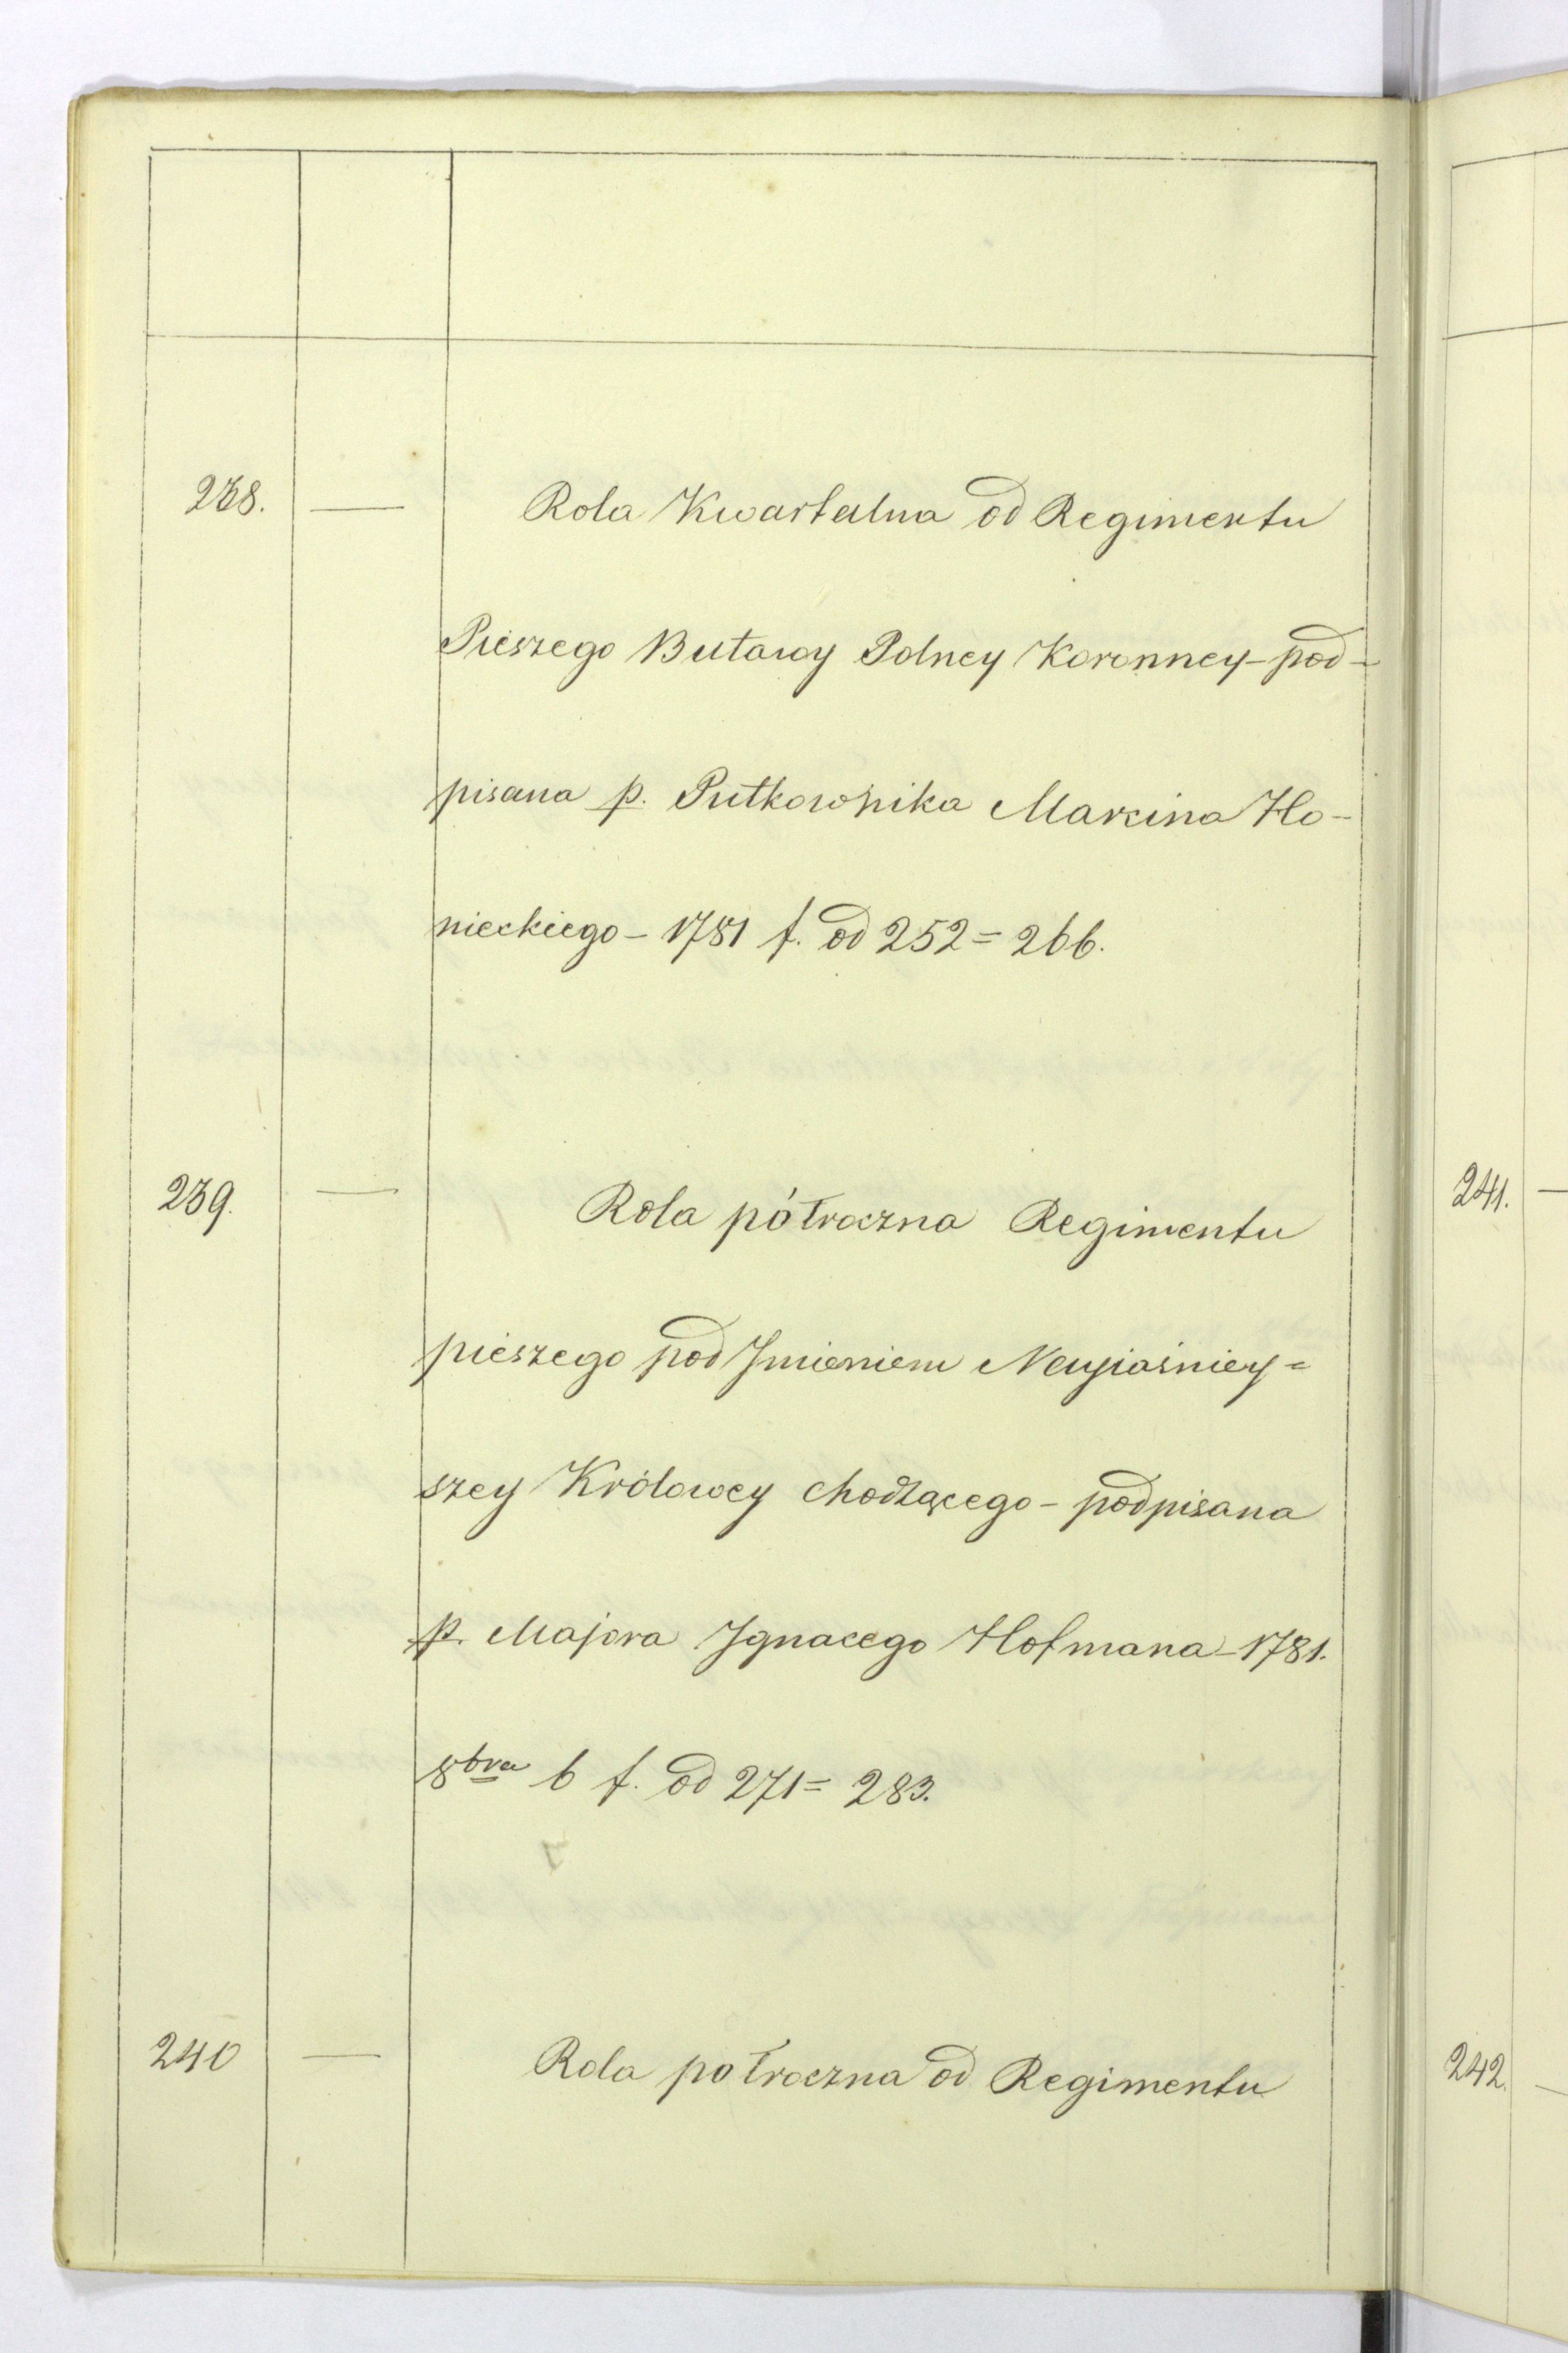 238. — Rola Kwartalna od Regimentu
Pieszego Buławy Polney Koronney - pod-
pisana p. Pułkownika Marcina Ho-
nieckiego - 1781 f. od 252 = 266.
239. — Rola półroczna Regimentu
pieszego pod Jmieniem Nayiaśniey=
szey Królowey chodzącego - podpisana
p. Majora Jgnacego Hofmana - 1781.
8bra 6 f. od 271 = 283.
240 — Rola połroczna od Regimentu
241. —
242. —